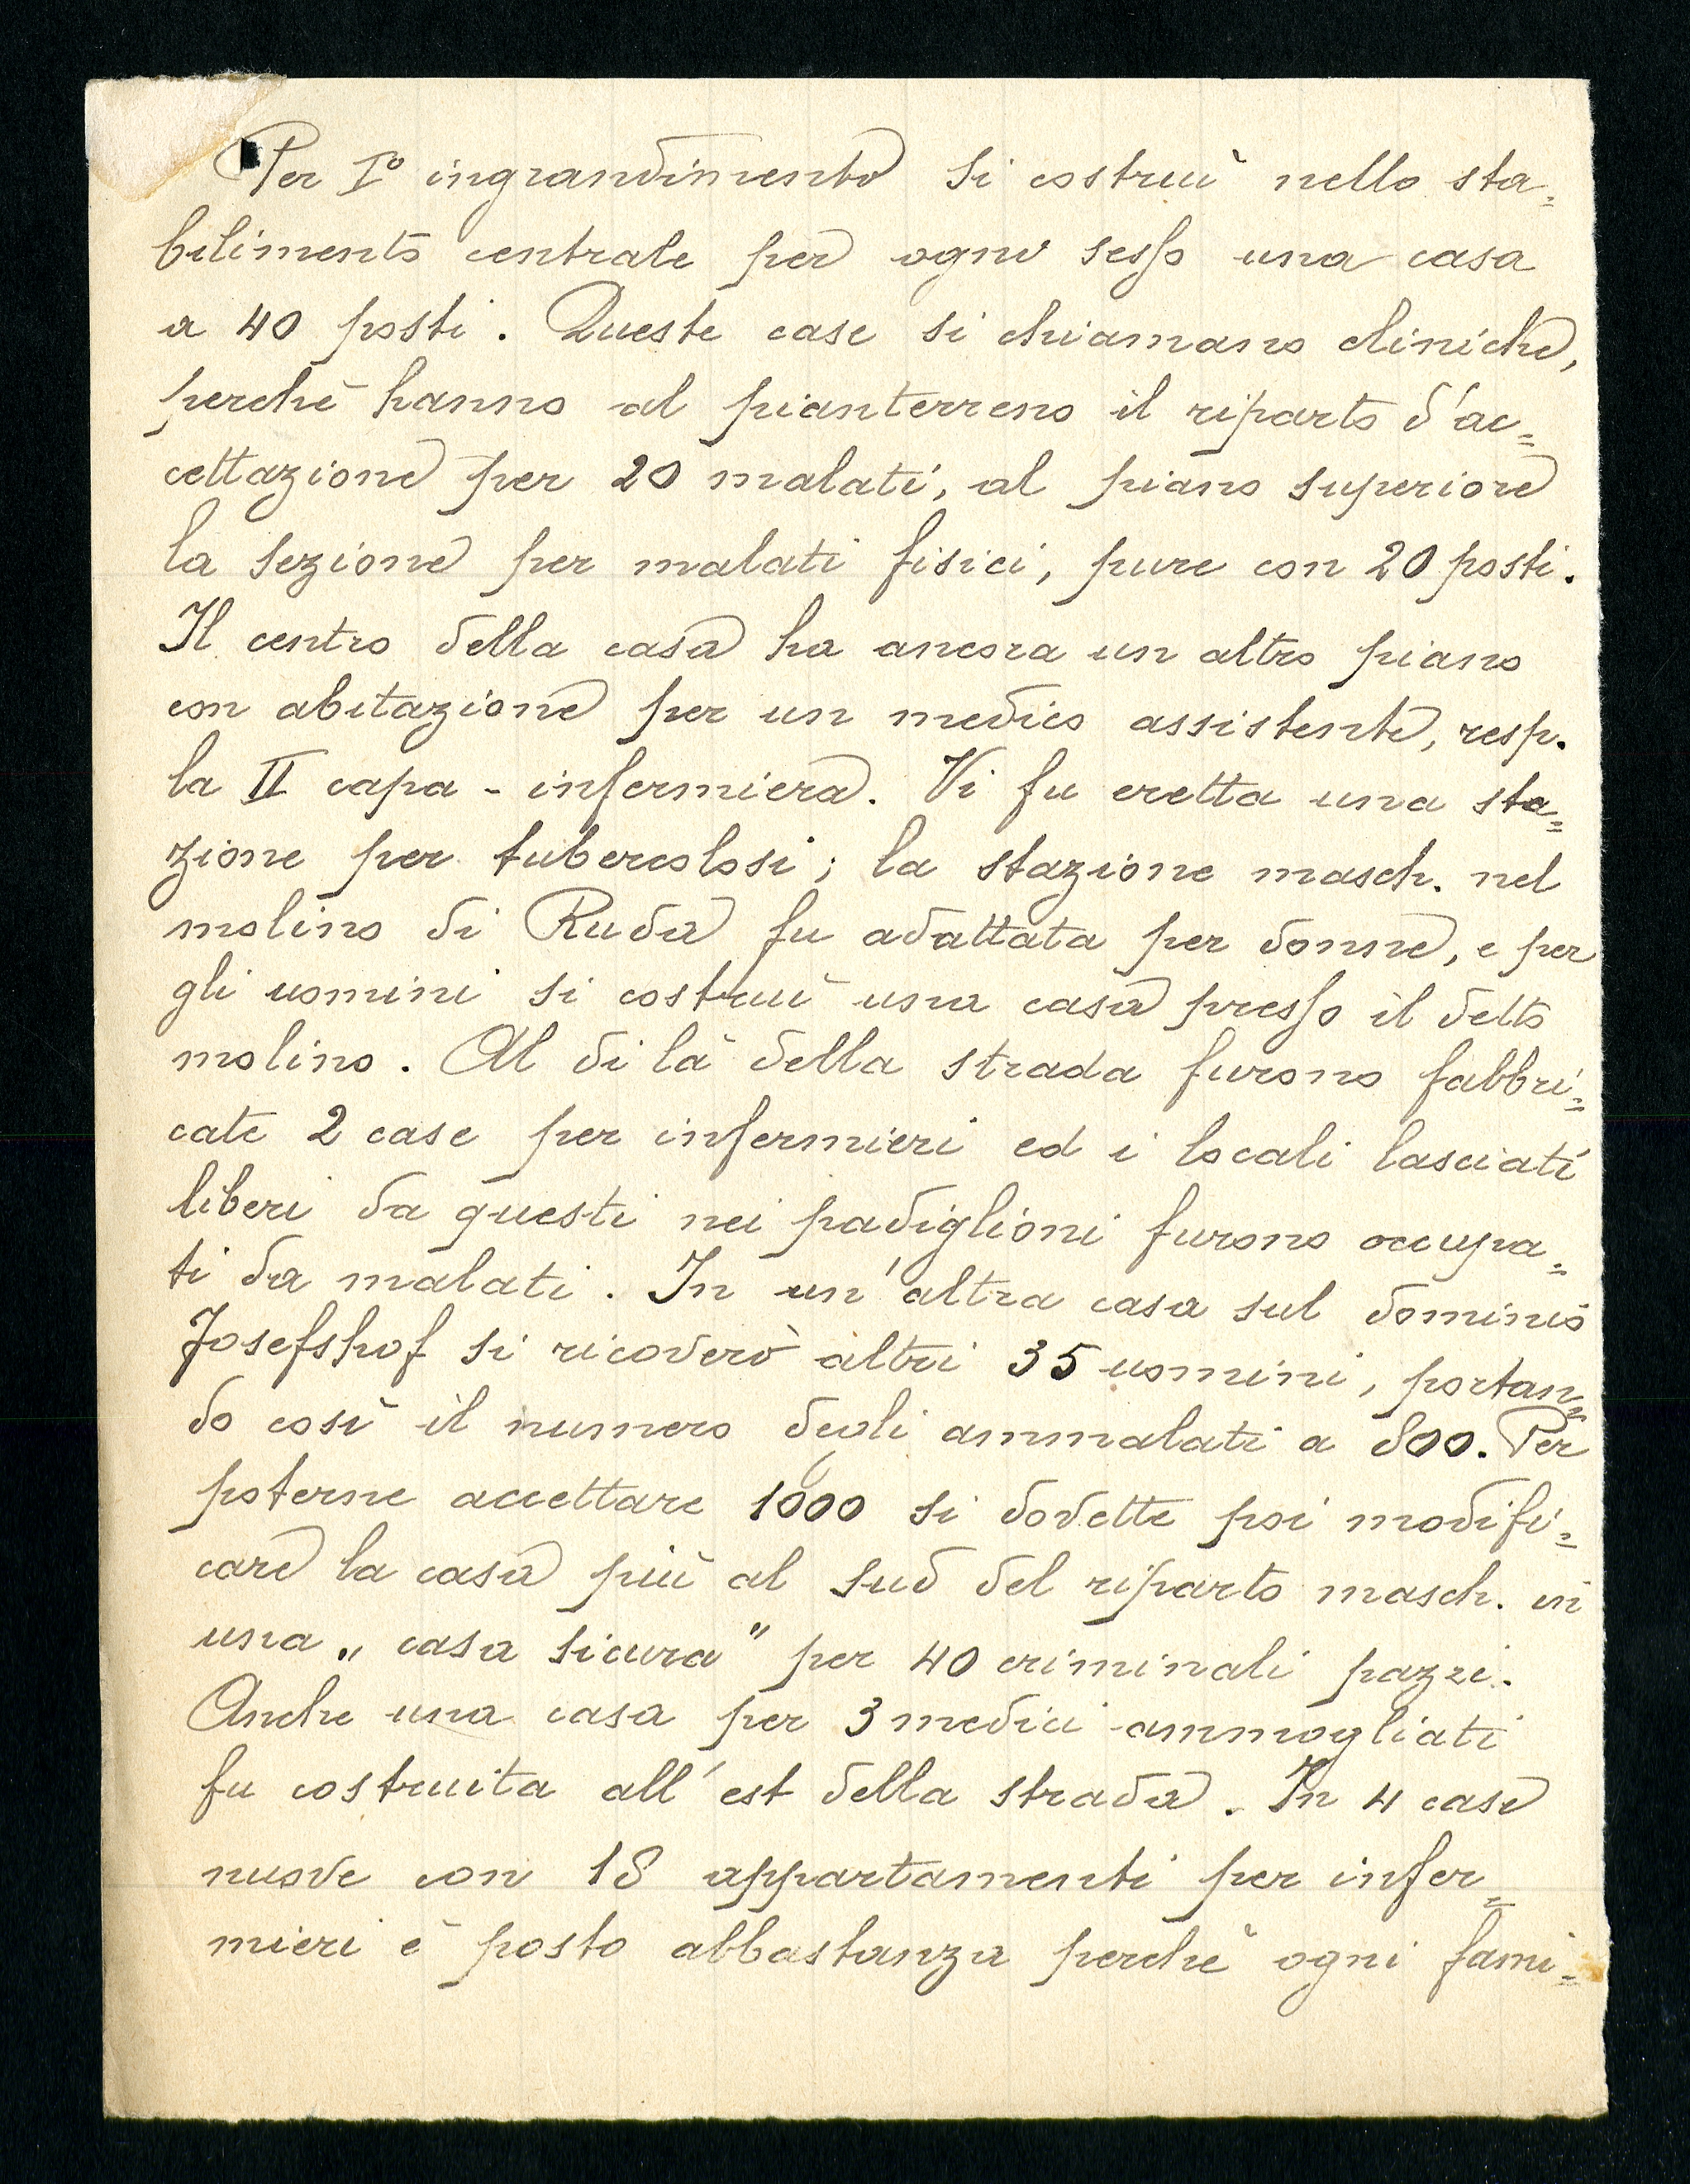 Per I° ingrandimento si costruì nello sta=
bilimento centrale per ogni sesso una casa
a 40 posti. Queste case si chiamano cliniche,
perchè hanno al pianterreno il riparto d'ac=
cettazione per 20 malati, al piano superiore
la sezione per malati fisici, pure con 20 posti.
Il centro della casa ha ancora un altro piano
con abitazione per un medico assistente, resp.
la II capa - infermiera. Vi fu eretta una sta=
zione per tubercolosi; la stazione masch. nel
molino di Ruda fu adattata per donne, e per
gli uomini si costruì una casa presso il detto
molino. Al di là della strada furono fabbri=
cate 2 case per infermieri ed i locali lasciati
liberi da questi nei padiglioni furono occupa=
ti da malati. In un'altra casa sul dominio
Josefshof si ricoverò altri 35 uomini, portan=
do così il numero degli ammalati a 800. Per
poterne accettare 1000 si dovette poi modifi=
care la casa più al sud del riparto masch. in
una „casa sicura" per 40 criminali pazzi.
Anche una casa per 3 medici ammogliati
fu costruita all'est della strada. In 4 case
nuove con 18 appartamenti per infer=
mieri è posto abbastanza perchè ogni fami=